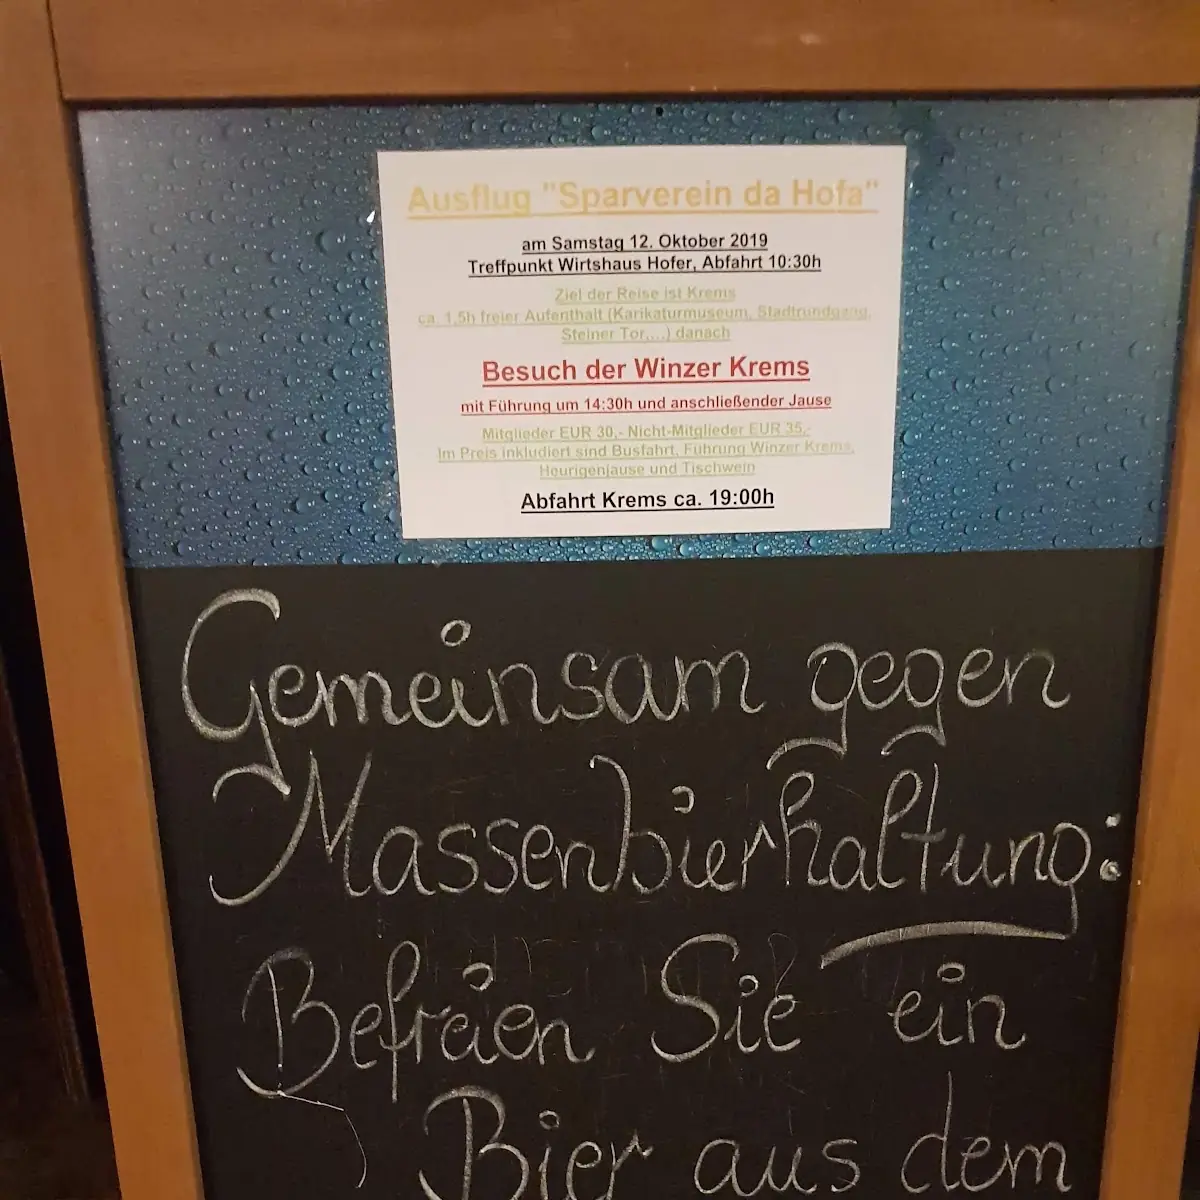 Ausflug "Sparverein da Hofa"
am Samstag 12. Oktober 2019
Treffpunkt Wirtshaus Hofer, Abfahrt 10:30h
Ziel der Reise ist Krems
ca. 1,5h freier Aufenthalt (Karikaturmuseum, Stadtrundgang,
Steiner Tor,...) danach
Besuch der Winzer Krems
mit Führung um 14:30h und anschließender Jause
Mitglieder EUR 30,- Nicht-Mitglieder EUR 35,-
Im Preis inkludiert sind Busfahrt, Führung Winzer Krems,
Heurigenjause und Tischwein
Abfahrt Krems ca. 19:00h
Gemeinsam gegen
Massenbierhaltung:
Befreien Sie ein
Bier aus dem